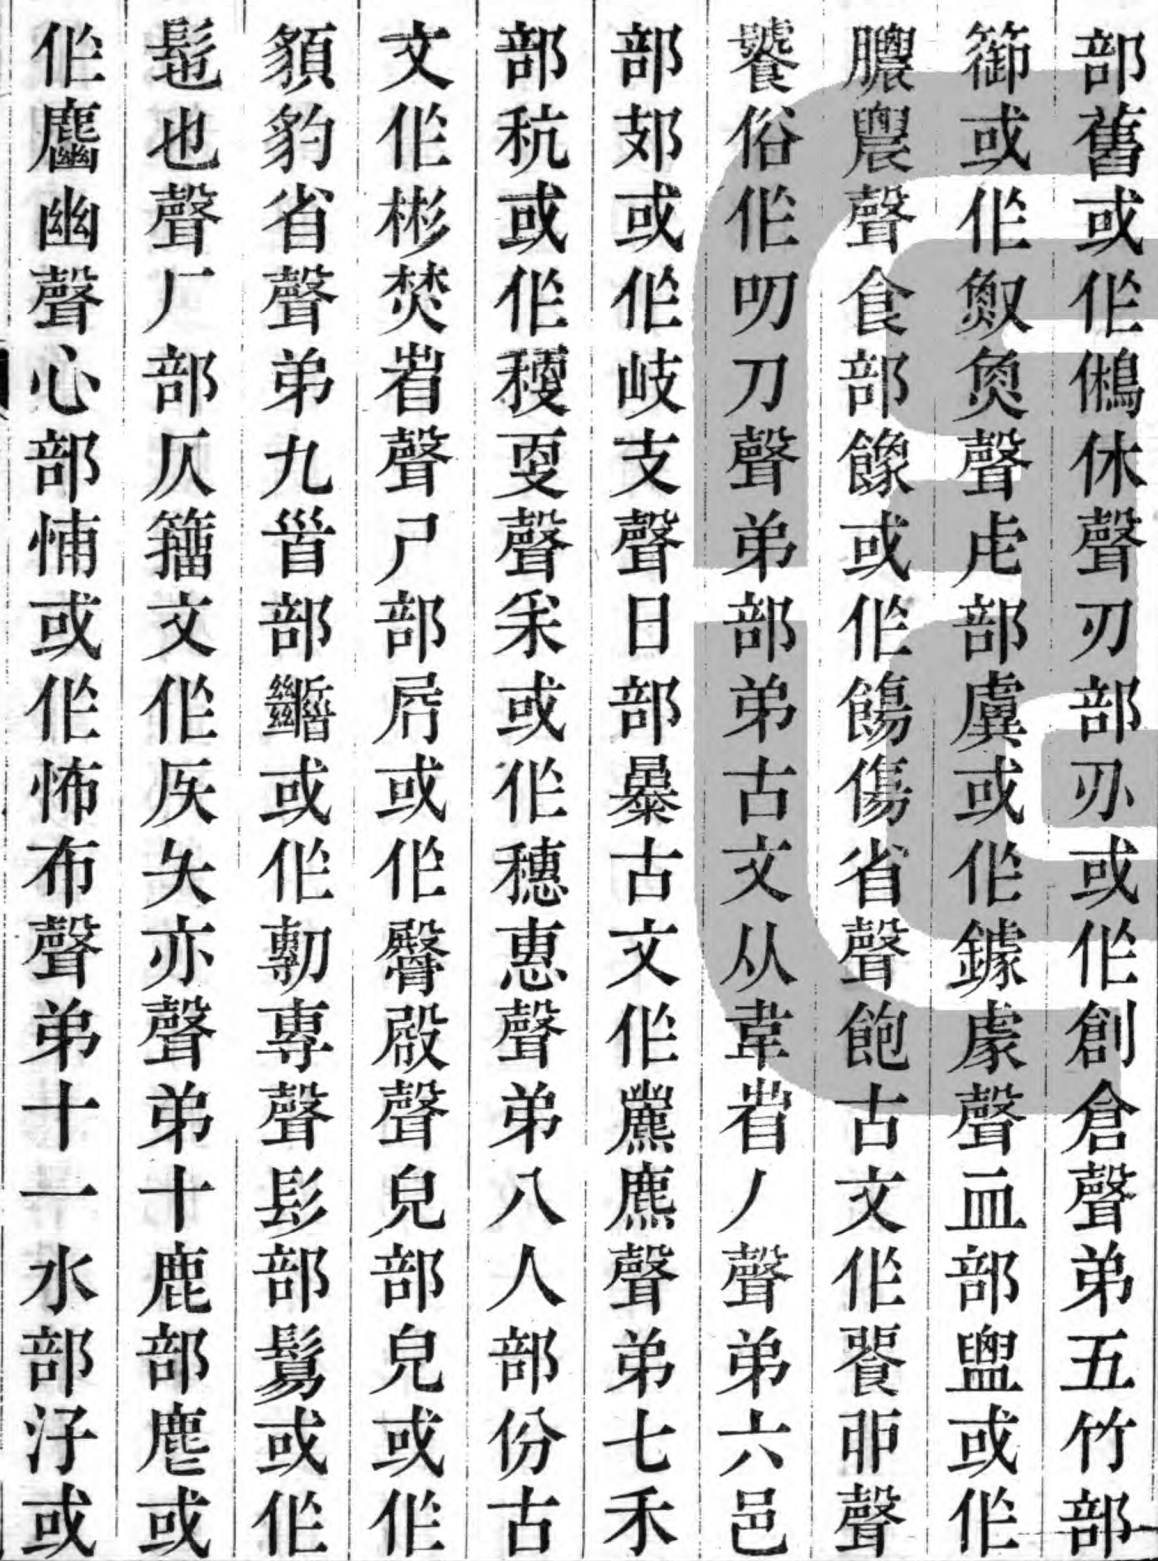 部舊或作鵂休聲刃部刅或作創倉聲弟五竹部
籞或作𩵎魚聲虍部虞或作鐻豦聲血部盥或作
膿農聲食部餯或作餳傷省聲飽古文作䬋卯聲
饕俗作叨刀聲弟部弟古文从韋省丿聲弟六邑
部郊或作岐支聲日部暴古文作麃聲弟七禾
部秔或作稉更聲采或作穗惠聲弟八人部份古
文作彬焚省聲尸部𡱂或作臀殿聲皃部皃或作
頪豹省聲弟九首部或作剸專聲髟部鬄或作
髢也聲厂部仄籀文作夨亦聲弟十鹿部麀或
作麎幽聲心部悑或作怖布聲弟十一水部汓或